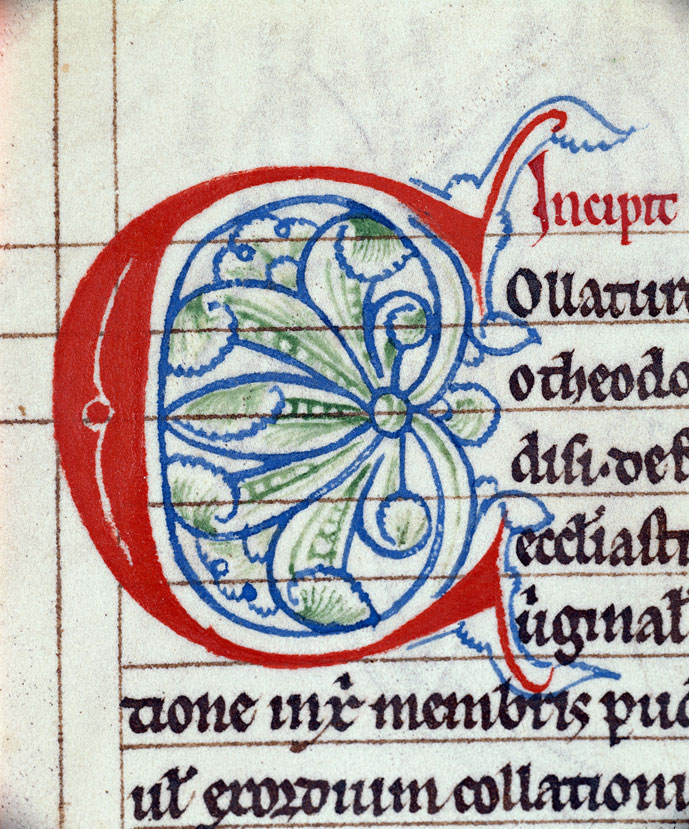 Incipit
COllatur
otheodo
disi. des
eccl'iastı
uirginal'
tione in xp̄i membris pud
ul' exordium collationi